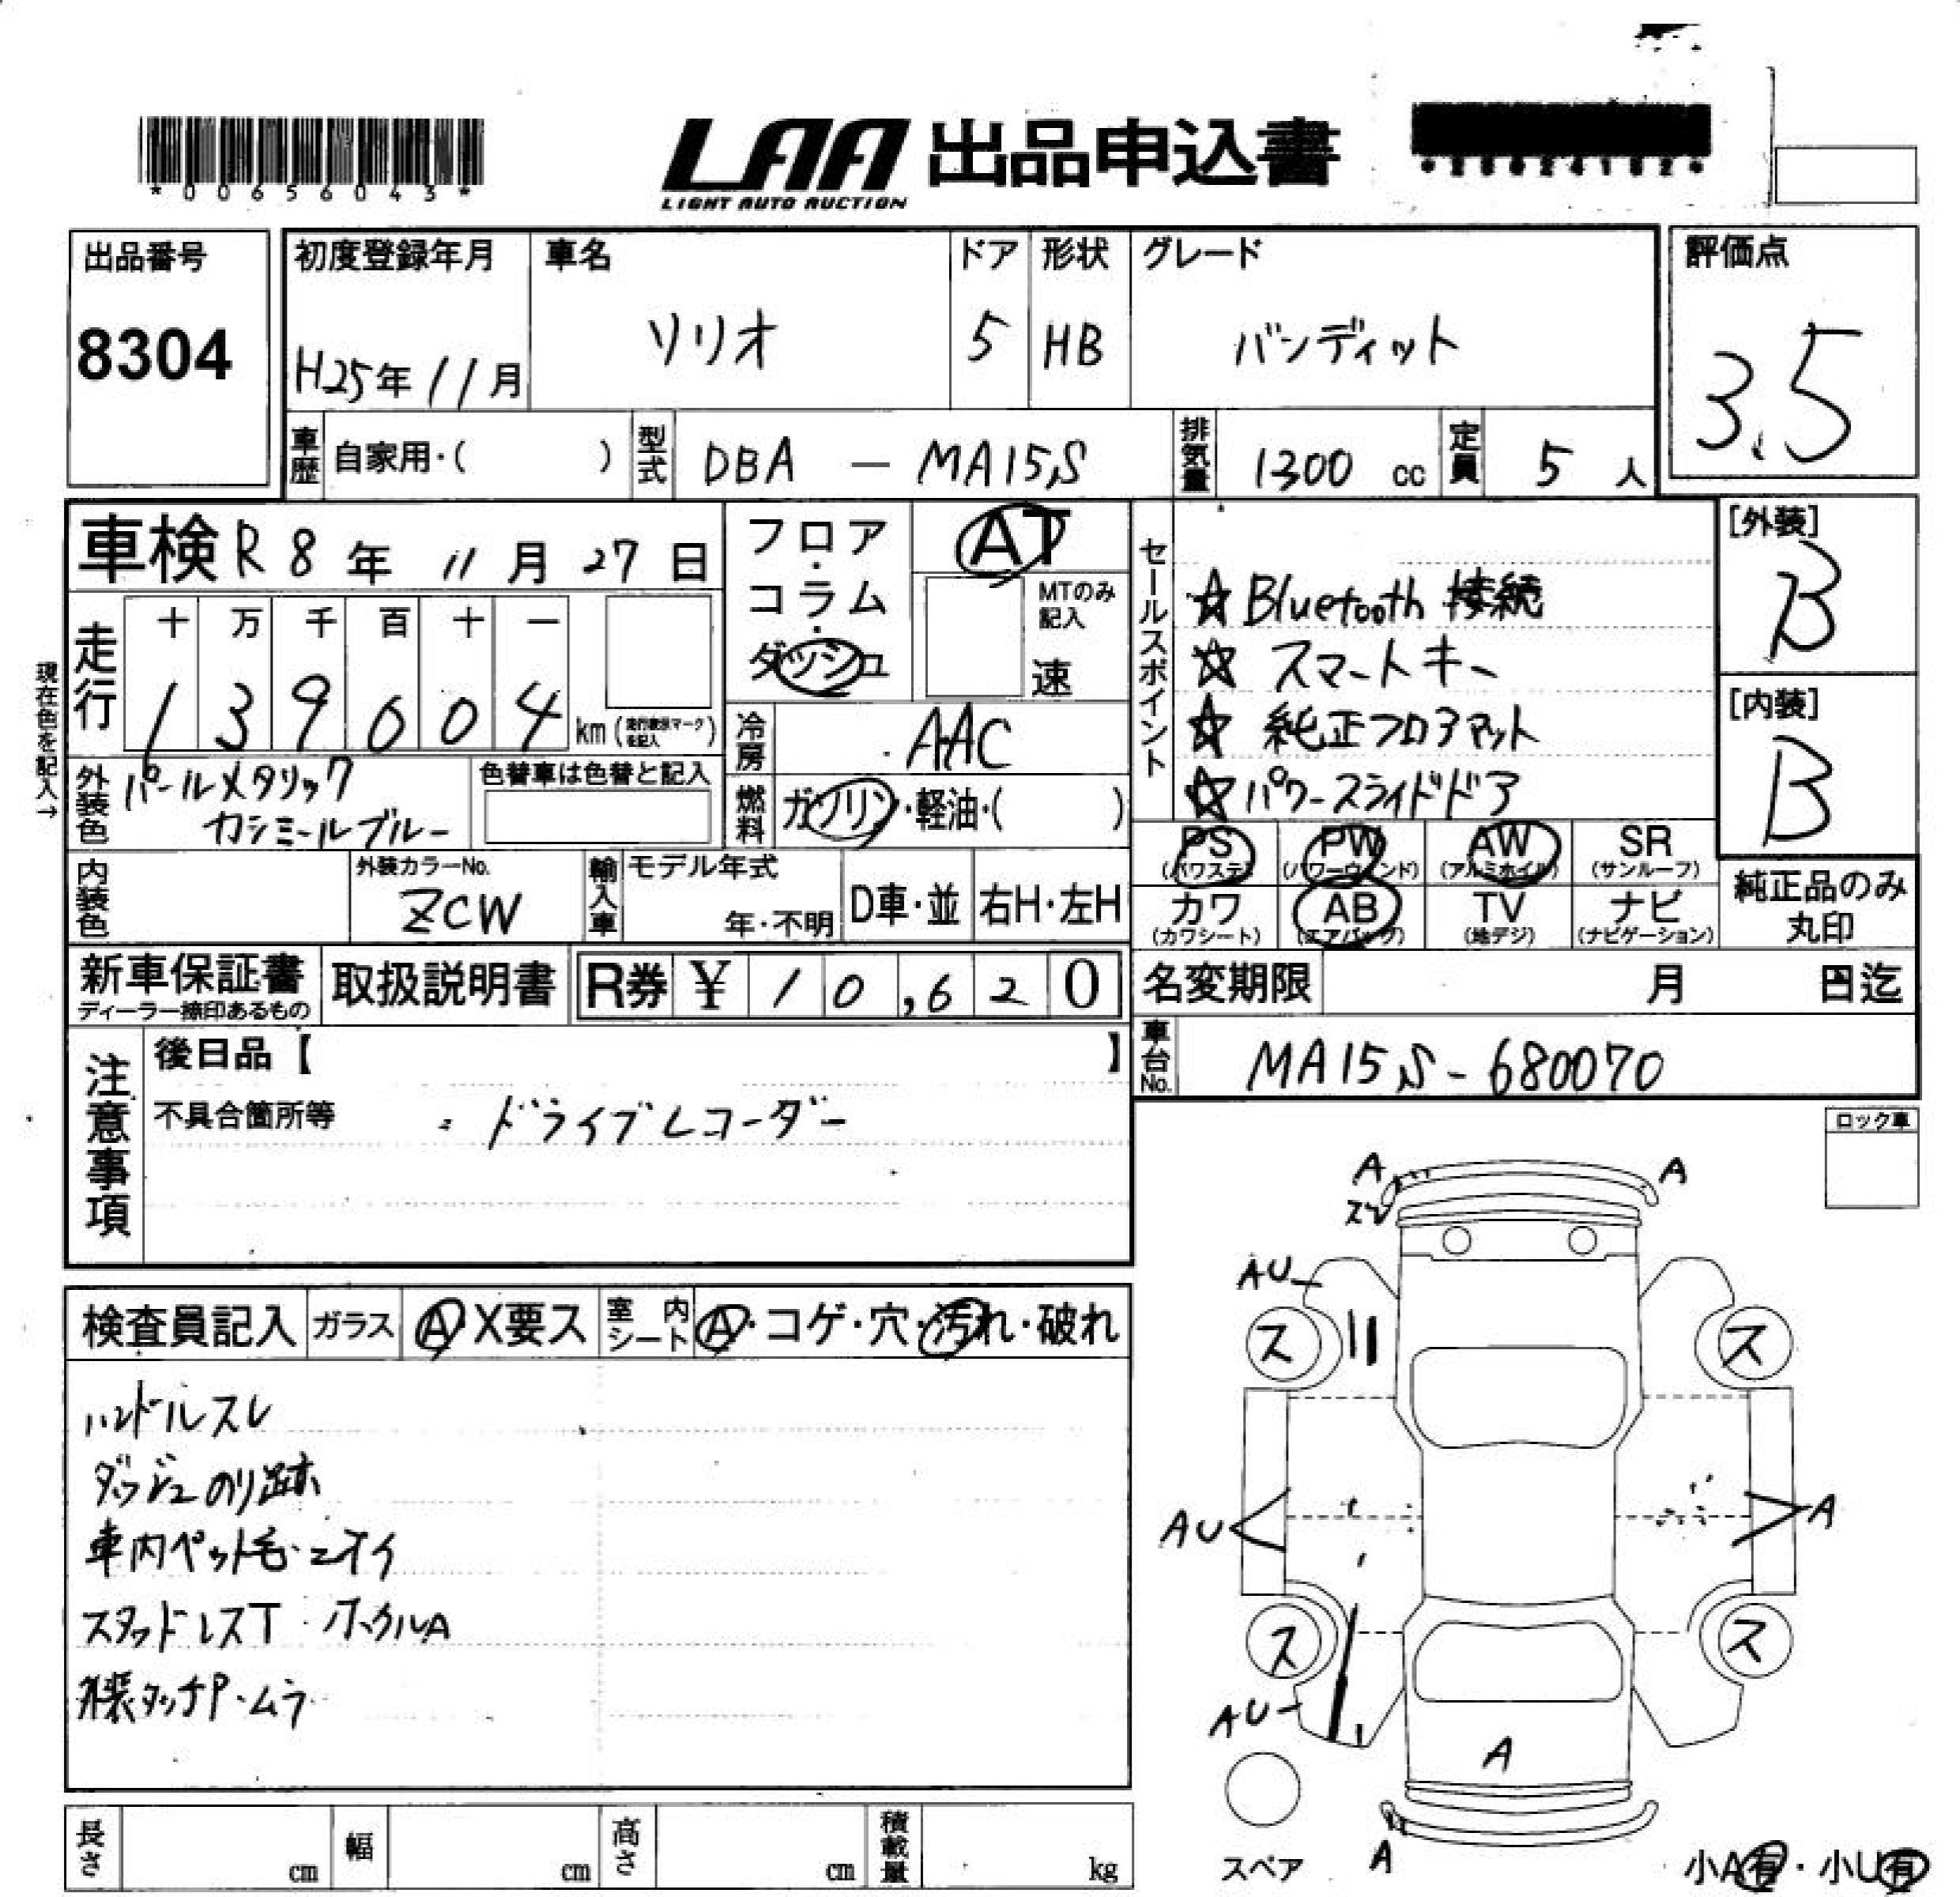 *00656043*
LAA 出品申込書
LIGHT AUTO AUCTION
出品番号
8304
初度登録年月
H25年11月
車名
ソリオ
ドア
5
形状
HB
グレード
バンディット
評価点
3.5
車歴 自家用・( )
型式 DBA - MA15S
排気量 1300 cc
定員 5 人
車検 R8年 11月 27日
フロア・コラム・ダッシュ
AT
MTのみ記入
速
現在色を記入→
走行
十 万 千 百 十 一
1 3 9 6 0 4 km
冷房 AAC
外装色 パールメタリック
カシミールブルー
色替車は色替と記入
燃料 ガソリン・軽油・( )
内装色
外装カラーNo.
ZCW
輸入車
モデル年式
年・不明
D車・並
右H・左H
新車保証書
ディーラー捺印あるもの
取扱説明書
R券 ¥ 10,620
セールスポイント
☆ Bluetooth 接続
☆ スマートキー
☆ 純正フロアマット
☆ パワースライドドア
[外装]
B
[内装]
B
PS (パワステ)
PW (パワーウィンド)
AW (アルミホイル)
SR (サンルーフ)
カワ (カワシート)
AB (エアバッグ)
TV (地デジ)
ナビ (ナビゲーション)
純正品のみ
丸印
名変期限 月 日迄
車台No. MA15S-680070
注意事項
後日品【 】
不具合箇所等
・ドライブレコーダー
ロック車
検査員記入
ガラス A・X要ス
室内シート A・コゲ・穴・汚れ・破れ
ハンドルスレ
ダッシュのり跡
車内ペット毛・ニオイ
スタッドレスT ホイルA
外装タッチP・ムラ
A
A
AU
ス
ス
AU
A
ス
ス
AU
A
A
スペア
小A有・小U有
長さ cm
幅 cm
高さ cm
積載量 kg